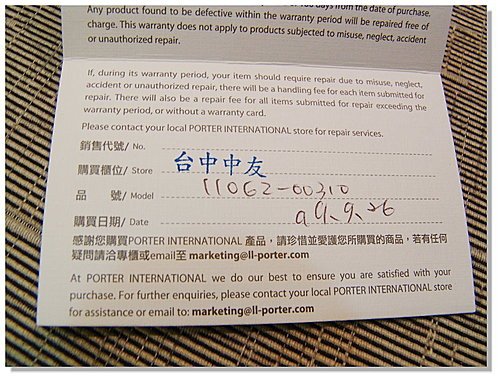 days from the date of purchase.
Any product found to be defective within the warranty period will be repaired free of
charge. This warranty does not apply to products subjected to misuse, neglect, accident
or unauthorized repair.
If, during its warranty period, your item should require repair due to misuse, neglect,
accident or unauthorized repair, there will be a handling fee for each item submitted for
repair. There will also be a repair fee for all items submitted for repair exceeding the
warranty period, or without a warranty card.
Please contact your local PORTER INTERNATIONAL store for repair services.
銷售代號/ No.
購買櫃位/ Store 台中中友
品 號/ Model 11062-00310
購買日期/ Date 99.9.26
感謝您購買PORTER INTERNATIONAL 產品，請珍惜並愛護您所購買的商品，若有任何
疑問請洽專櫃或email至 marketing@ll-porter.com
At PORTER INTERNATIONAL we do our best to ensure you are satisfied with your
purchase. For further enquiries, please contact your local PORTER INTERNATIONAL store
for assistance or email to: marketing@ll-porter.com